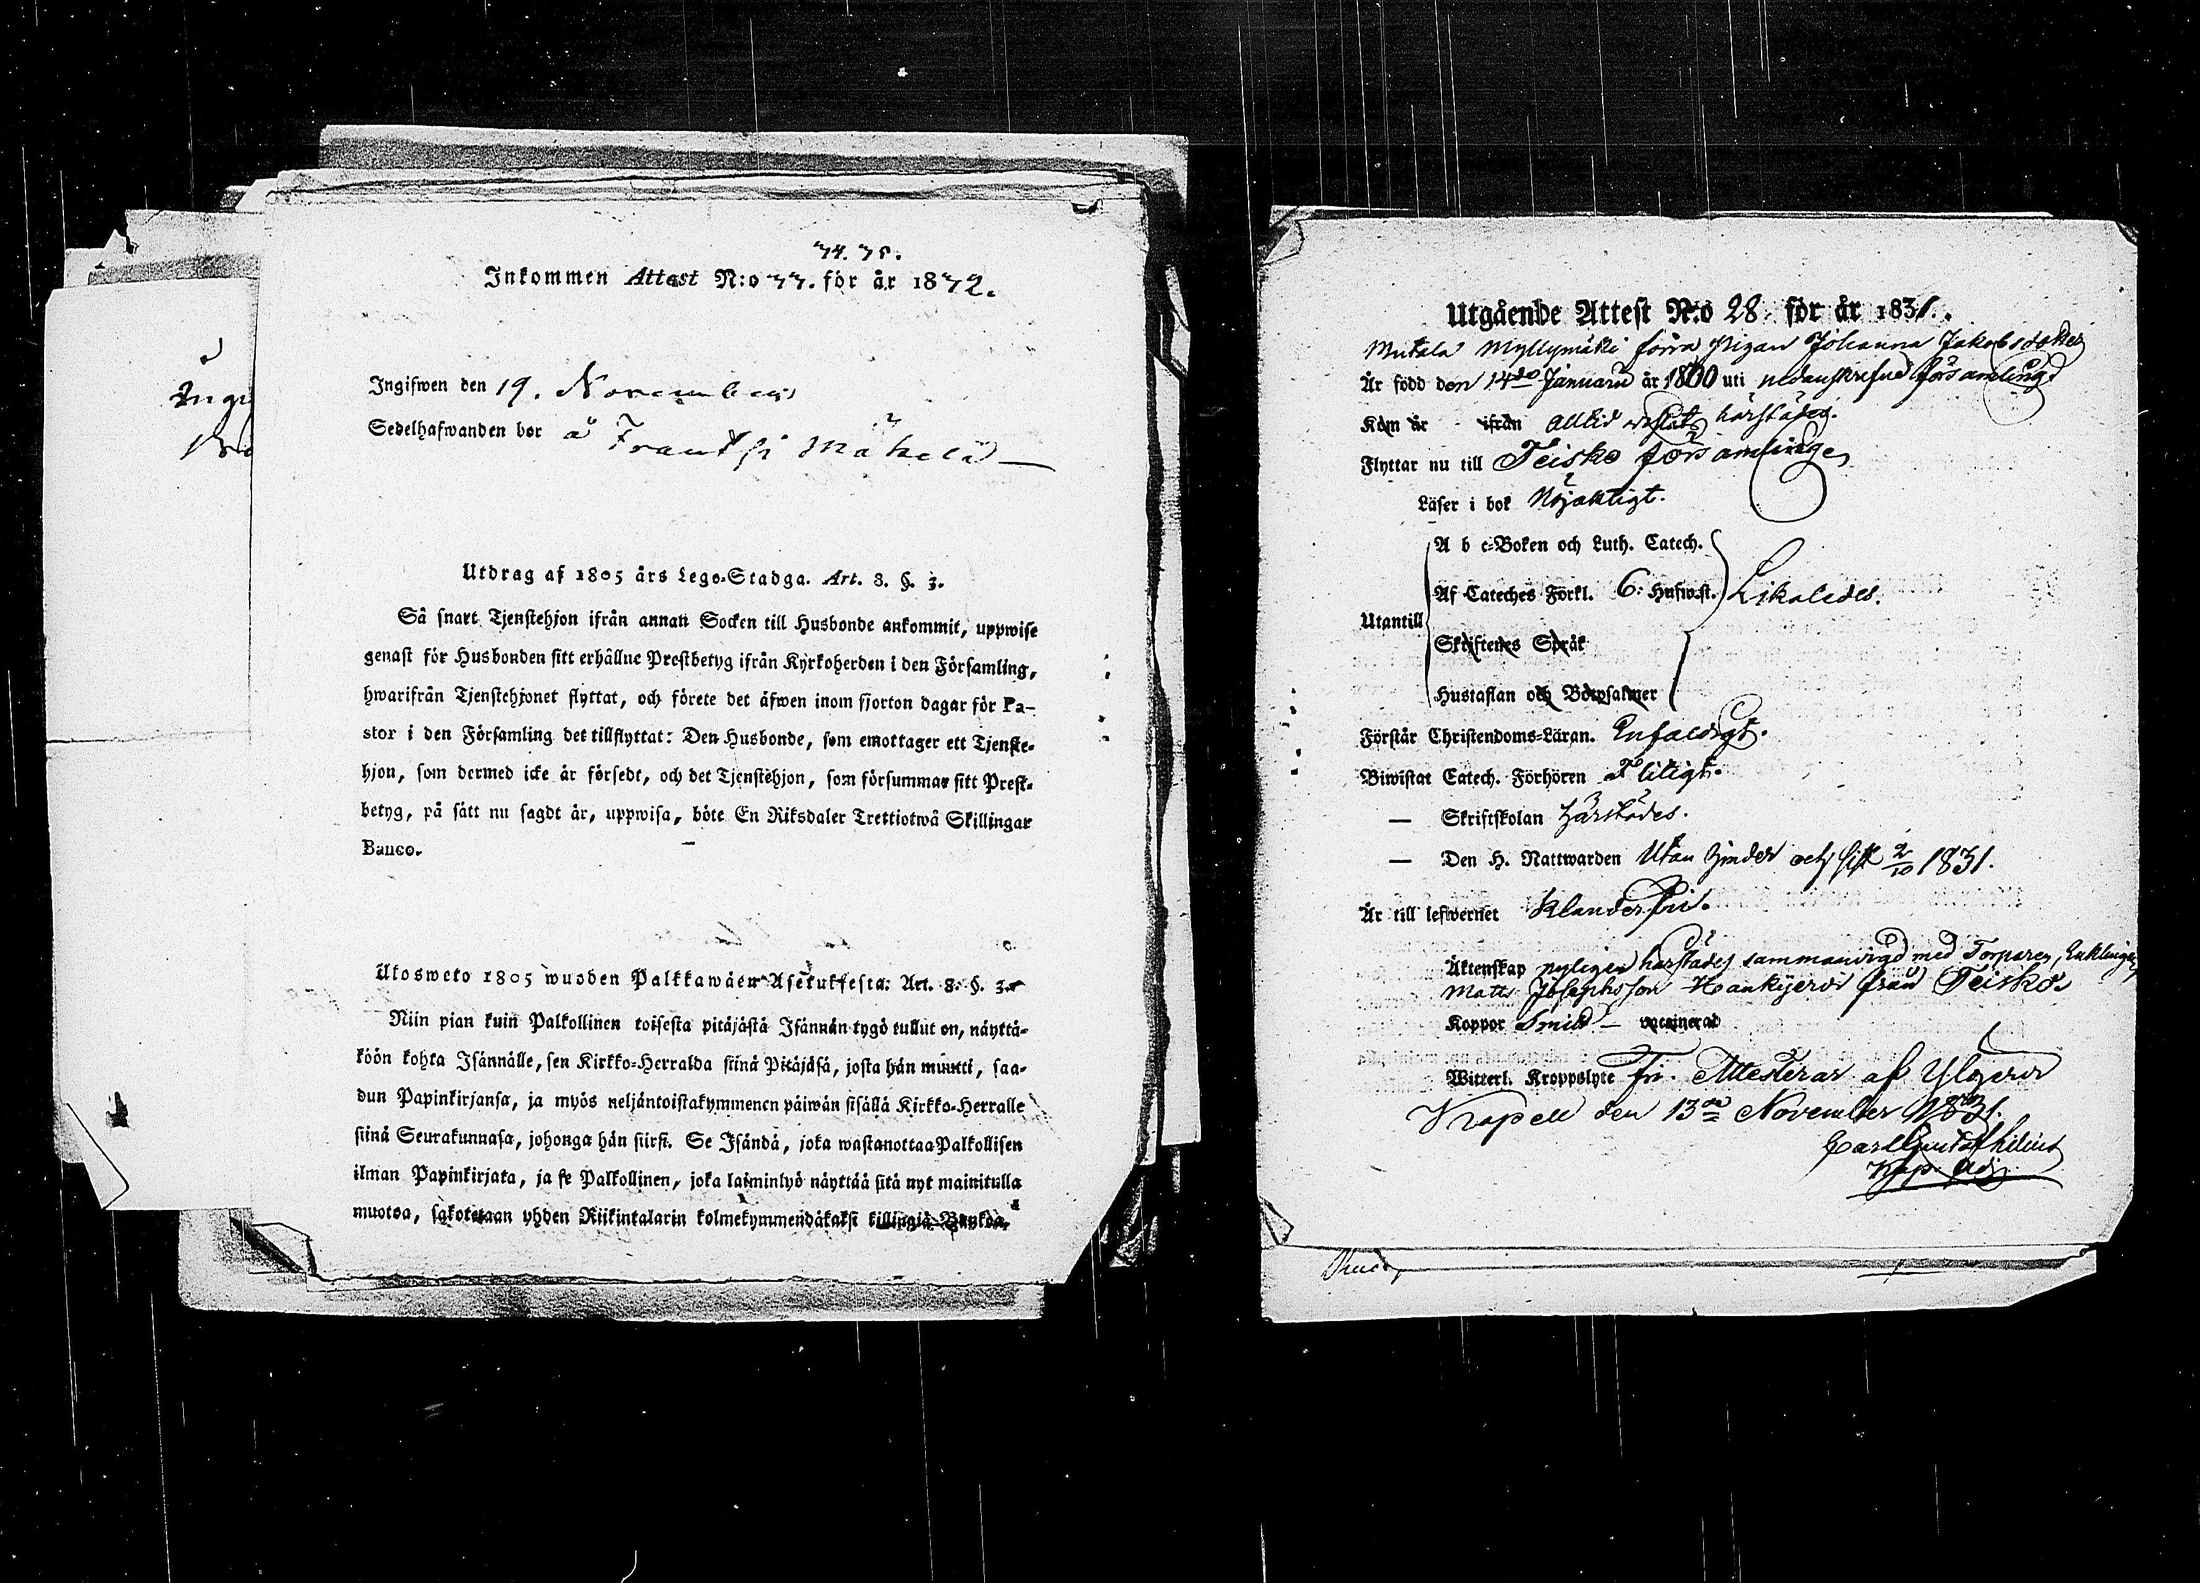 74. 75.
Inkommen Attest N:o 77. för år 1872.
Ingifwen den 19. November
Sedelhafwanden bor å Frantsi Mäkelä
Utdrag af 1805 års Lego-Stadga. Art. 8. §. 3.
Så snart Tjenstehjon ifrån annan Socken till Husbonde ankommit, uppwise
genast för Husbonden sitt erhållne Prestbetyg ifrån Kyrkoherden i den Församling,
hwarifrån Tjenstehjonet flyttat, och förete det äfwen inom fjorton dagar för Pa-
stor i den Församling det tillflyttat: Den Husbonde, som emottager ett Tjenste-
hjon, som dermed icke är försedt, och det Tjenstehjon, som försummar sitt Prest-
betyg, på sätt nu sagdt är, uppwisa, böte En Riksdaler Trettiotwå Skillingar
Banco.
Ulosweto 1805 wuoden Palkkawäen Asetuksesta: Art. 8. §. 3.
Niin pian kuin Palkollinen toisesta pitäjästä Isännän tygö tullut on, näyttä-
köön kohta Isännälle, sen Kirkko-Herralda siinä Pitäjäsä, josta hän muutti, saa-
dun Papinkirjansa, ja myös neljäntoistakymmenen päiwän sisällä Kirkko-Herralle
siinä Seurakunnasa, johonga hän siirsi. Se Isändä, joka wastanottaa Palkollisen
ilman Papinkirjata, ja se Palkollinen, joka laiminlyö näyttää sitä nyt mainitulla
muotoa, sakotetaan yhden Riikintalarin kolmekymmendäkaksi killingiä Bankoa.
Utgående Attest N:o 28 för år 1831.
Mutala Myllymäki förra Pigan Johanna Jakobsdotter
Är född den 14de Januarii år 1800 uti nedanskrefne församling
Kom år ifrån alltid wistats härstädes.
Flyttar nu till Teisko församling
Läser i bok Nöjaktigt.
A b c-Boken och Luth. Catech.
Af Cateches Förkl. 6: Hufw.st. Likaledes.
Utantill
Skriftenes Språk
Hustaflan och Botpsalmer
Förstår Christendoms-Läran. Enfaldigt.
Biwistat Catech. Förhören Flitigt.
— Skriftskolan härstädes.
— Den H. Nattwarden Utan hinder och sist 2/10 1831.
Är till lefwernet Klanderfri.
Äktenskap nyligen härstädes sammanvigd med Torparen, Enklingen
Matts Josephsson Hankijerwi från Teisko
Koppor Smitt — vaccinerad
Witterl. Kroppslyte fri. Attesterar af Ylöjerwi
Kapell den 13de November 1831.
Carl Gustaf
Kap. Adj.